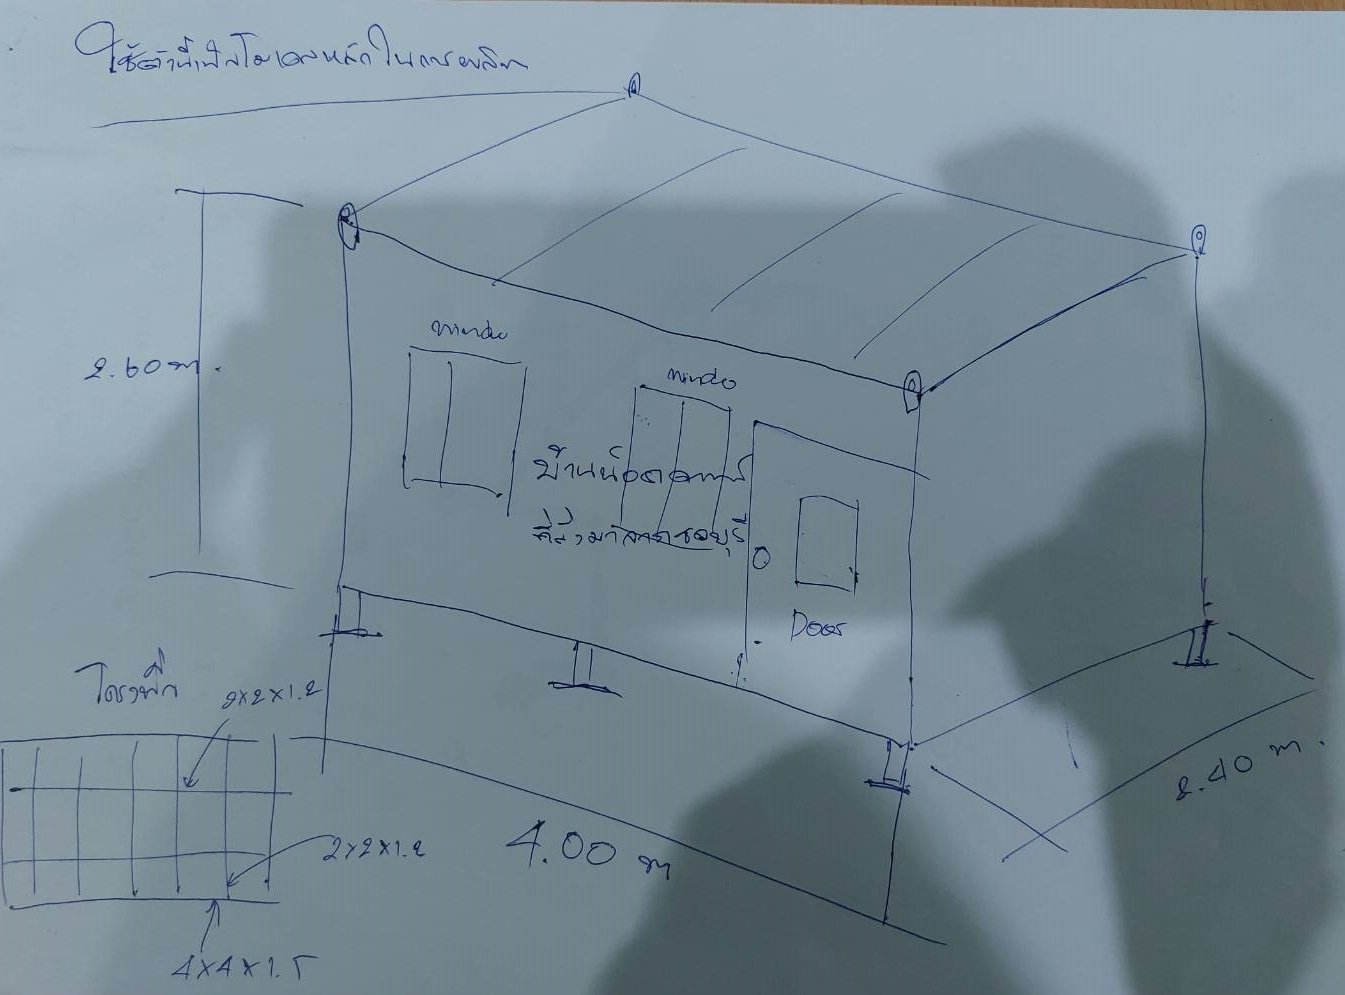 ใช้ตัวนี้เป็นโมเดลหลักในการผลิต
2.60 m.
windo
windo
บ้านน็อคดาวน์
ที่ส่งมาจากชลบุรี
Door
โครงพื้น
2x2x1.2
2x2x1.2
4x4x1.5
4.00 m
2.40 m.